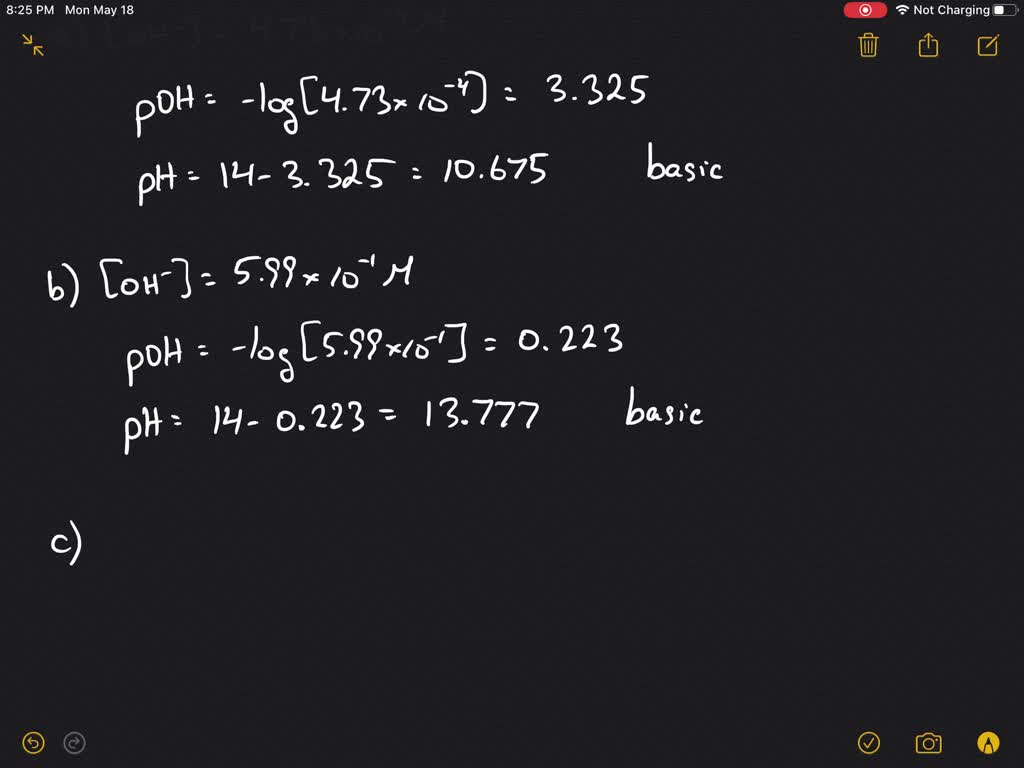 8:25 PM Mon May 18
Not Charging
pOH = -log[4.73×10⁻⁴] = 3.325
pH = 14 - 3.325 = 10.675 basic
b) [OH⁻] = 5.99×10⁻¹ M
pOH = -log[5.99×10⁻¹] = 0.223
pH = 14 - 0.223 = 13.777 basic
c)